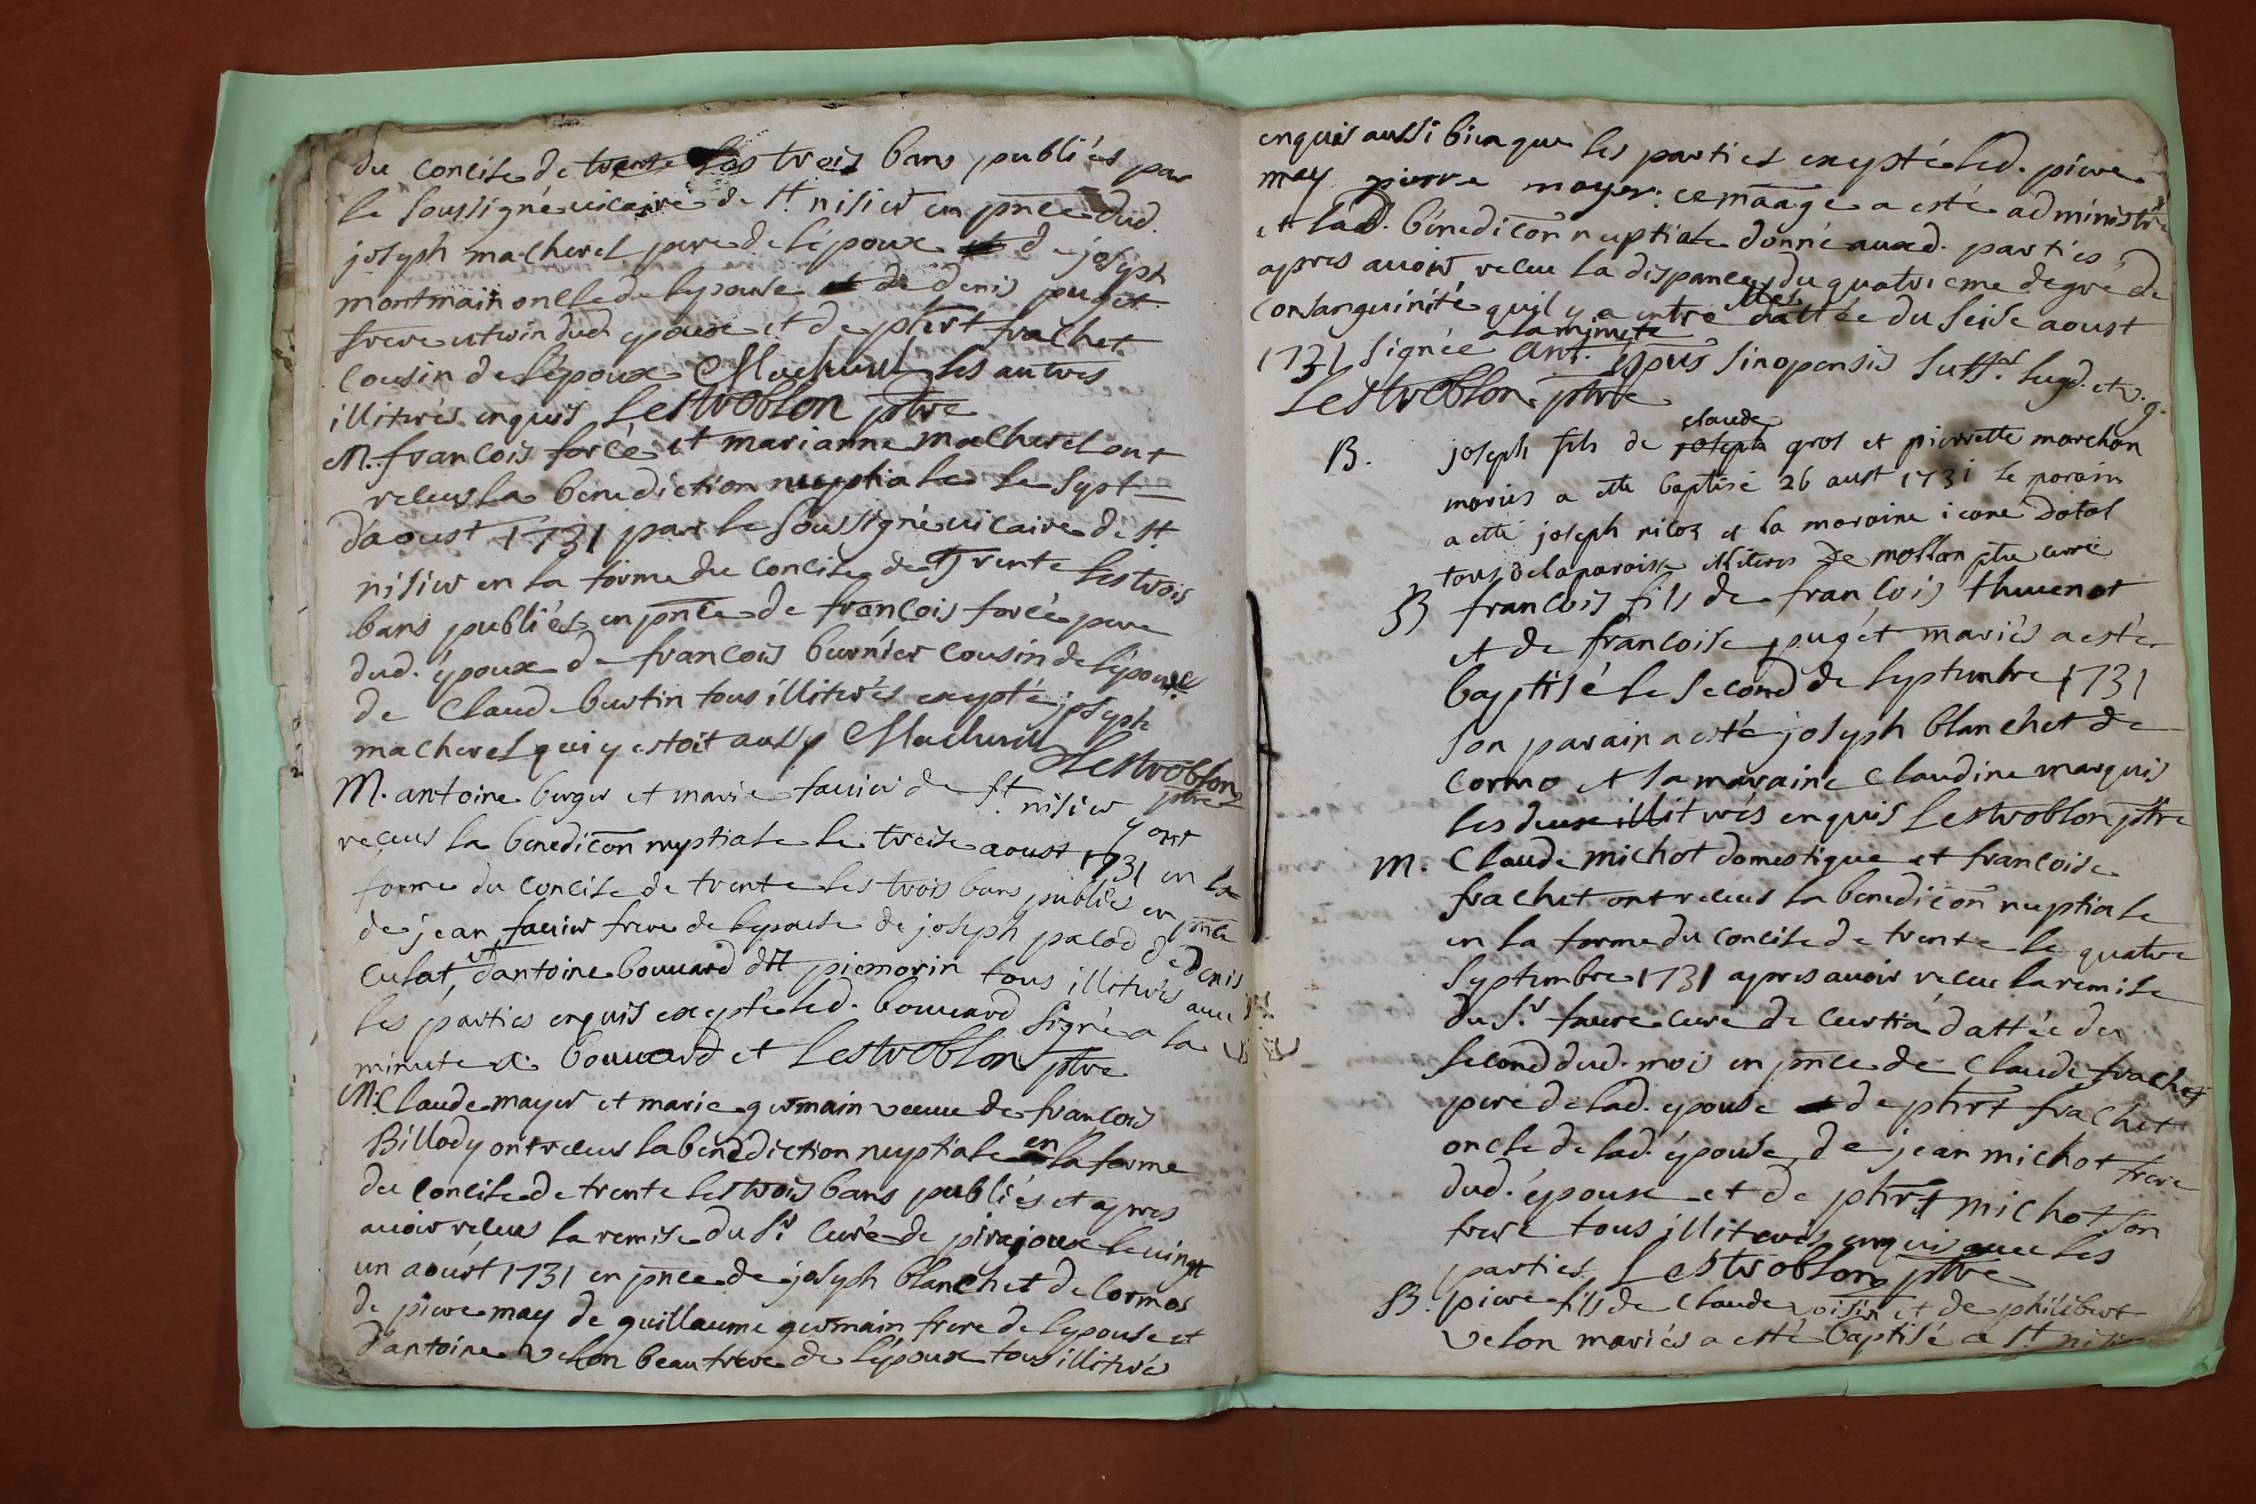 du concile de trente les trois bans publiés par
le soussigné vicaire de st. nisier en pnce dud.
joseph macherel pere de l'époux de joseph
montmain oncle de lepouse de denis puget
frere uterin dud epoux et de phert frachet
cousin de l'époux Macherel les autres
illiterés enquis Lestroblon ptre
M. francois forcé et marianne macherel ont
receus la benediction nuptiale le sept
d'aoust 1731 par le soussigné vicaire de st.
nisier en la forme du concile de Trente les trois
bans publiés en pnce de francois forcé pere
dud. époux de francois burnier cousin de lépouse
de Claude burtin tous illiterés excepté joseph
macherel qui y estoit aussy Macherel Lestroblon
ptre
M. antoine berger et marie favier de st nisier y ont
receus la benedicon nuptiale le treise aoust 1731 en la
forme du concile de trente les trois bans publiés en pnce
de jean favier frere de lepouse de joseph pacod de denis
culat, et d'antoine bouvard dit piemorin tous illiterés avec
les parties enquis excepté led. bouvard signé a la
minute a. bouvard et Lestroblon ptre
M. Claude mayer et marie germain veuve de francois
Billody ont receus la bénédiction nuptiale en la forme
du concile de trente les trois bans publiés et apres
avoir receus la remise du sr. curé de pirajoux le vingt
un aoust 1731 en pnce de joseph blanchet de cormos
de piere may de guillaume germain frere de lepouse et
d'antoine velon beaufrere de l'époux tous illiterés
enquis aussi bien que les parties excepté led. piere
may pierre mayer. ce maage a esté administré
et lad. bénedicon nuptiale donné auxd. parties
apres avoir receu la dispance du quatrieme degré de
consanguinité quil y a entre elles dattée du seise aoust
1731 signée a la minute ant. epus sinopensis suffr. lugd. et v. g.
Lestroblon ptre
B. joseph fils de claude gros et pierrette marchon
mariés a esté baptisé 26 aust 1731 le parain
a esté joseph nicoz et la maraine icane dotal
tous de la paroisse illiteres De mollan ptre curé
B francois fils de francois thuvenot
et de francoise pugét mariés a esté
baptisé le second de septembre 1731
son parain a esté joseph blanchet de
cormo et sa maraine claudine marquis
les deux illiterés enquis Lestroblon ptre
M. Claude michot domestique et francoise
frachet ont receus la benedicon nuptiale
en la forme du concile de trente le quatre
septembre 1731 apres avoir receu la remise
du sr. favre curé de curtia dattée du
second dud. mois en pnce de Claude frachet
pere de lad. epouse de phert frachet
oncle de lad. épouse, de jean michot frere
dud. époux et de phert michot son
frere tous illiterés enquis avec les
parties Lestroblon ptre
B. piere fils de claude voisin et de philiberte
velon mariés a esté baptisé a st. nisier